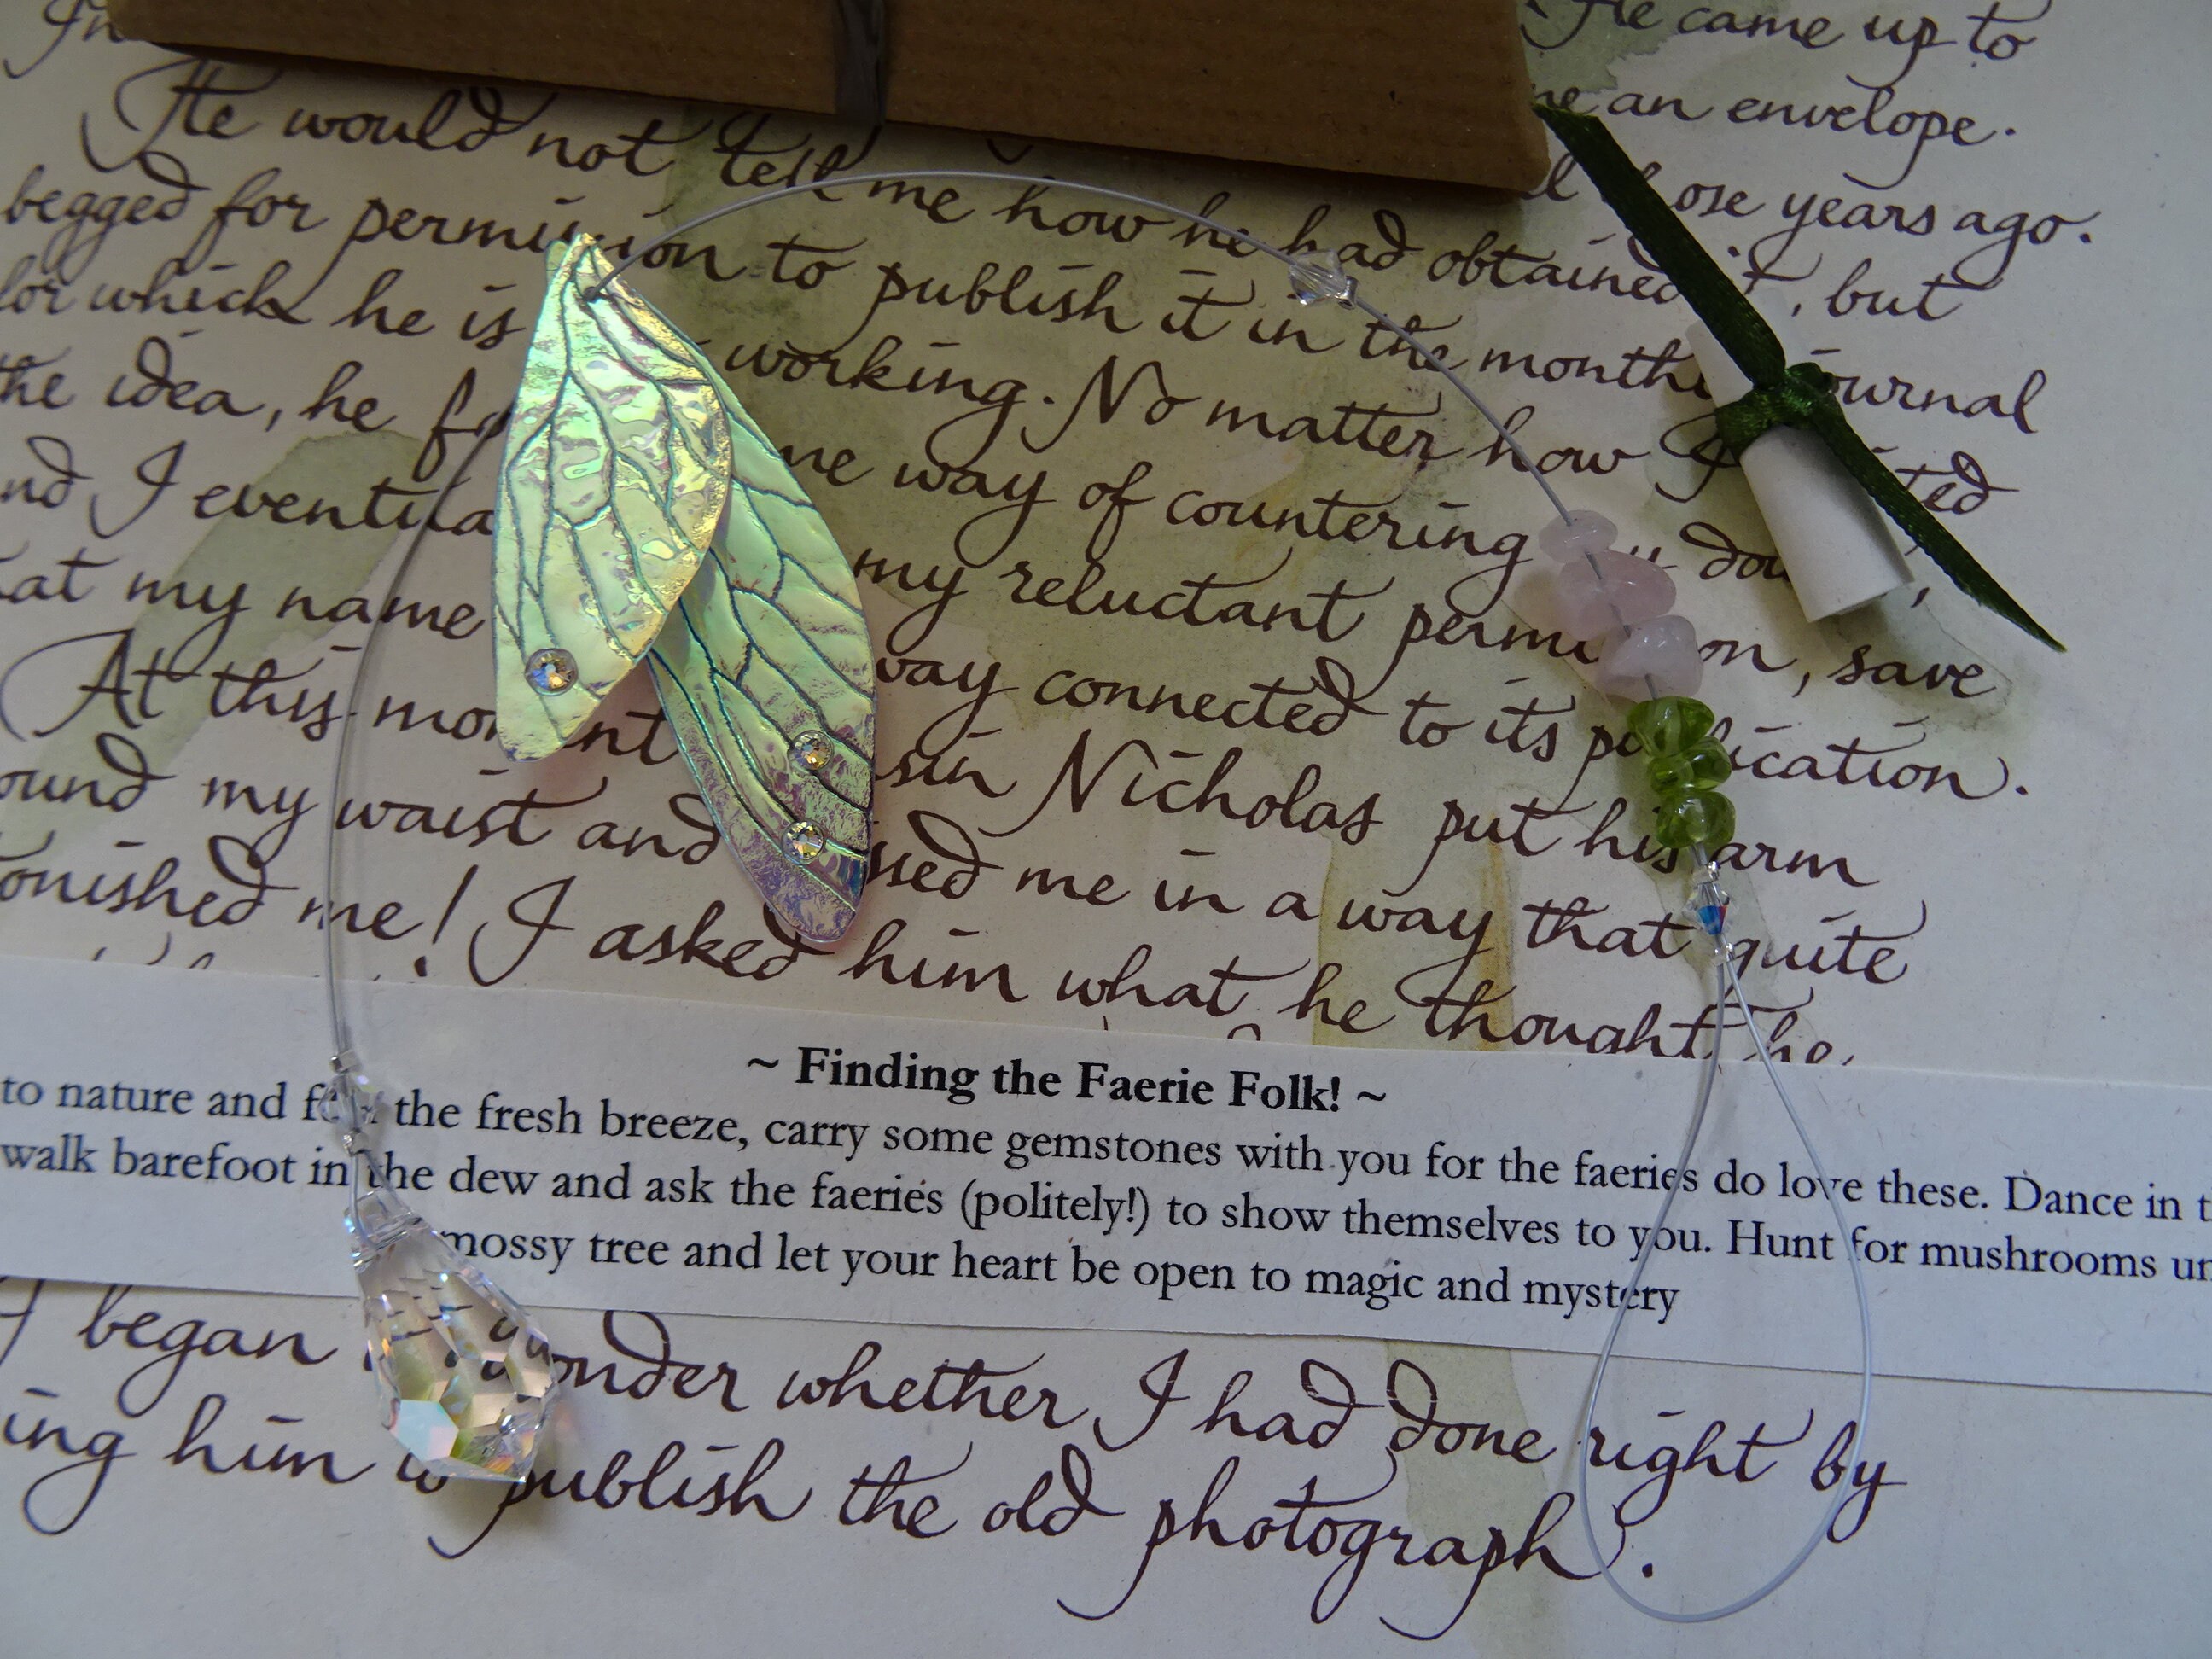 He came up to
an envelope.
He would not tell me how he had obtained it, but
years ago.
begged for permission to publish it in the monthly journal
for which he is working. No matter how I
the idea, he way of countering
and I my reluctant permission, save
that my name way connected to its publication.
At this moment Nicholas put his arm
my waist and me in a way that quite
me! I asked him what he thought he
~ Finding the Faerie Folk! ~
to nature and the fresh breeze, carry some gemstones with you for the faeries do love these. Dance in
walk barefoot in the dew and ask the faeries (politely!) to show themselves to you. Hunt for mushrooms
mossy tree and let your heart be open to magic and mystery
I began wonder whether I had done right by
him to publish the old photograph.